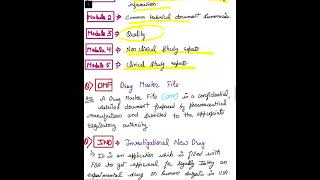 information.
Module 2 → Common technical document summaries
Module 3 → Quality
Module 4 → Non clinical study reports
Module 5 → Clinical study reports.
DMF Drug Master File
A Drug Master File (DMF) is a confidential,
detailed document prepared by pharmaceutical
manufacturer and submitted to the appropriate
regulatory authority.
IND → Investigational New Drug
→ ID is an application which is filed with
FDA to get approval for legally testing an
experimental drug on human subjects in USA.